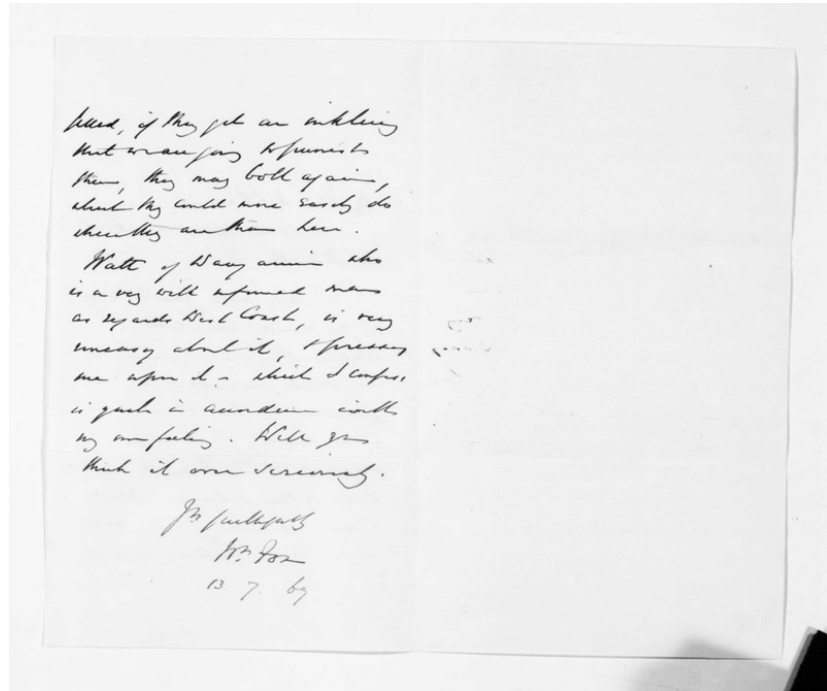 if they get an inkling
that we are going to punish
them, they may bolt again,
which they could more easily do
there than here.
Watt of Wanganui who
is a very well informed man
as regards West Coast, is very
uneasy about it, & presses
me upon it - which I confess
is quite in accordance with
my own feeling. Will you
think it over seriously.
Yrs faithfully
Wm Fox
13. 7. 69